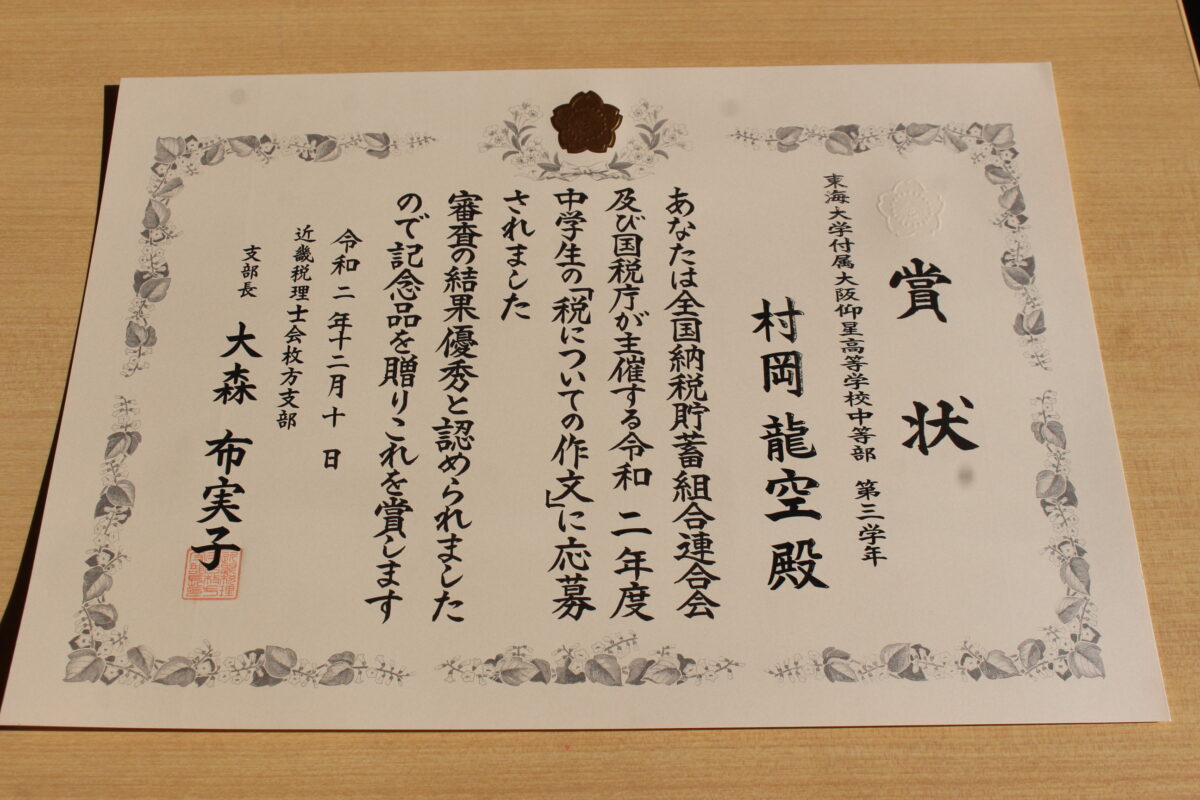 賞状
東海大学付属大阪仰星高等学校中等部 第三学年
村岡龍空殿
あなたは全国納税貯蓄組合連合会
及び国税庁が主催する令和二年度
中学生の「税についての作文」に応募
されました
審査の結果優秀と認められました
ので記念品を贈りこれを賞します
令和二年十二月十日
近畿税理士会枚方支部
支部長 大森布実子